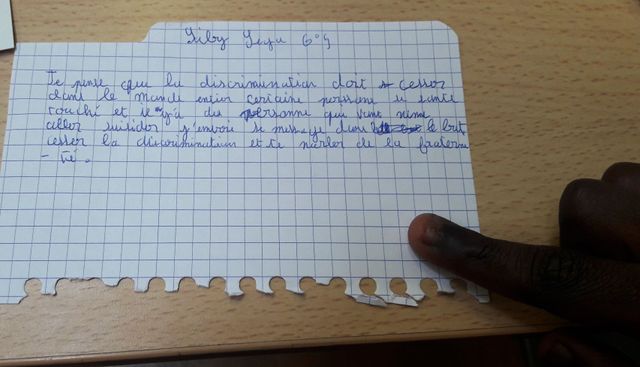 Siby Seya 6°5
Je pense que la discrimination doit cesser
dans le monde entier certaine personne si sante
touché et il y'a des personne qui vont même
aller suicider j'envoie se message dans le but
cesser la discrimination et de parler de la fraterni
-té.